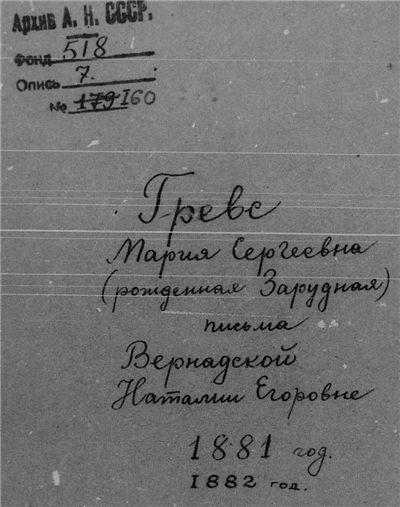 Архив А. Н. СССР.
Фонд 518
Опись 7.
№ 179 160
Гревс
Мария Сергеевна
(рожденная Зарудная)
письма
Вернадской
Наталии Егоровне
1881 год.
1882 год.